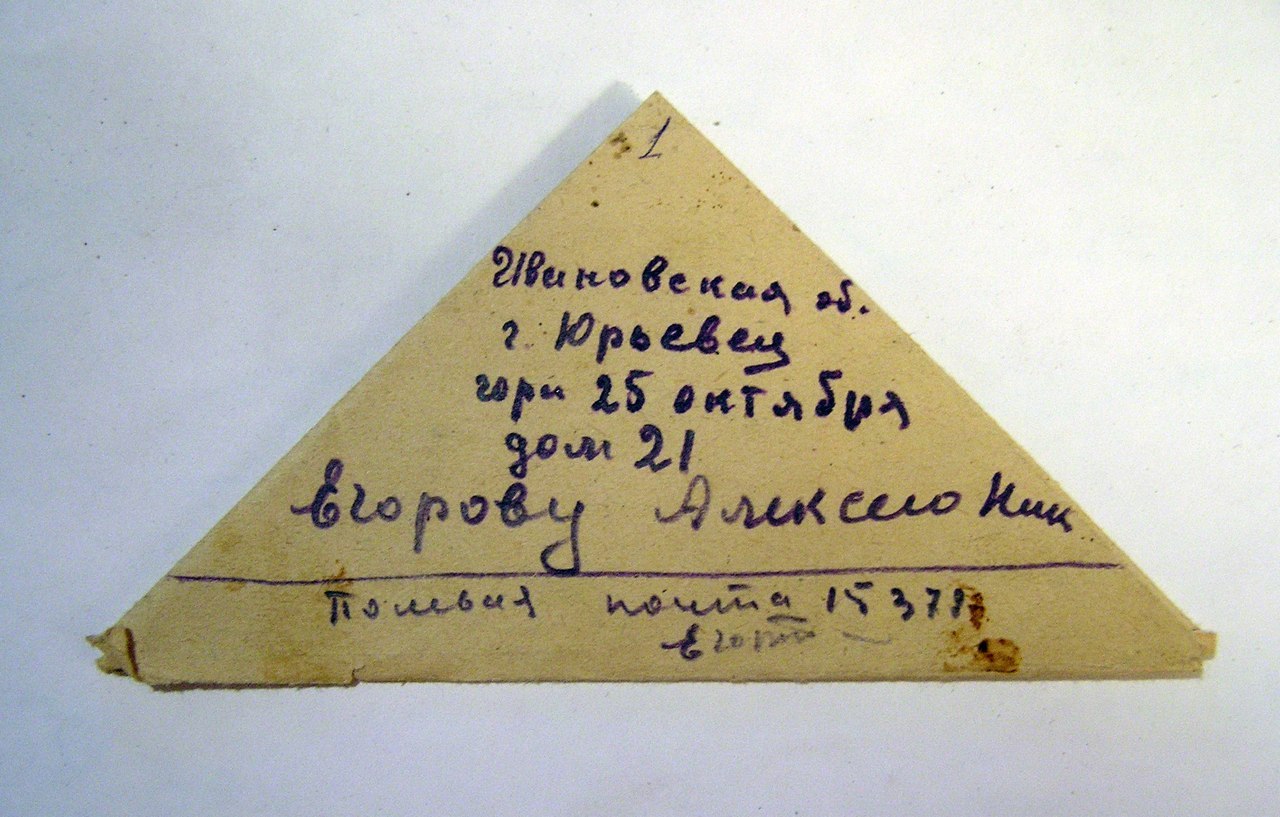 1
Ивановская об.
г. Юрьевец
гора 25 октября
дом 21
Егорову Алексею Ник
Полевая почта 15378